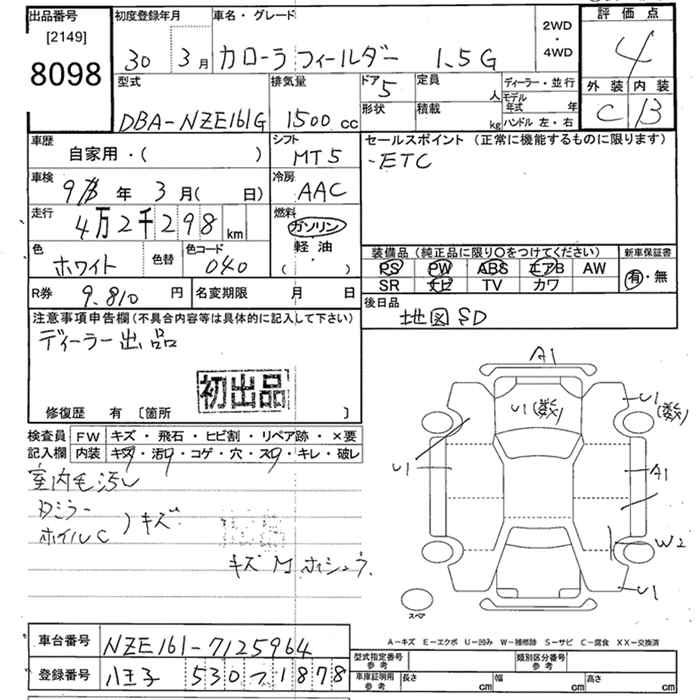 出品番号
[2149]
8098
初度登録年月
30 3月
車名・グレード
カローラフィールダー 1.5G
2WD・4WD
評価点
4
外装 内装
C B
型式
DBA-NZE161G
排気量
1500 cc
ドア
5
形状
定員
人
積載
kg
ディーラー・並行
モデル年式 年
ハンドル 左・右
車歴
自家用・( )
シフト
MT5
セールスポイント (正常に機能するものに限ります)
・ETC
車検
年 3月( 日)
冷房
AAC
走行
4万2千298 km
燃料
ガソリン
軽油
( )
色
ホワイト
色替
色コード
040
装備品(純正品に限り○をつけてください)
PS PW ABS エアB AW
SR ナビ TV カワ
新車保証書
有・無
R券
9.810 円
名変期限 月 日
後日品
地図SD
注意事項申告欄(不具合内容等は具体的に記入して下さい)
ディーラー出品
初出品
修復歴 有 〔箇所 〕
検査員記入欄
FW キズ・飛石・ヒビ割・リペア跡・×要
内装 キズ・汚レ・コゲ・穴・スレ・キレ・破レ
室内毛汚レ
ホイルC
キズ
A1
U1
U1(数)
(数)
U1
A1
W2
U1
スペア
A-キズ E-エクボ U-凹み W-補修跡 S-サビ C-腐食 XX-交換済
車台番号
NZE161-7125964
登録番号
八王子 530 つ 1878
型式指定番号
参考
類別区分番号
参考
車庫証明用
参考
長さ cm
幅 cm
高さ cm